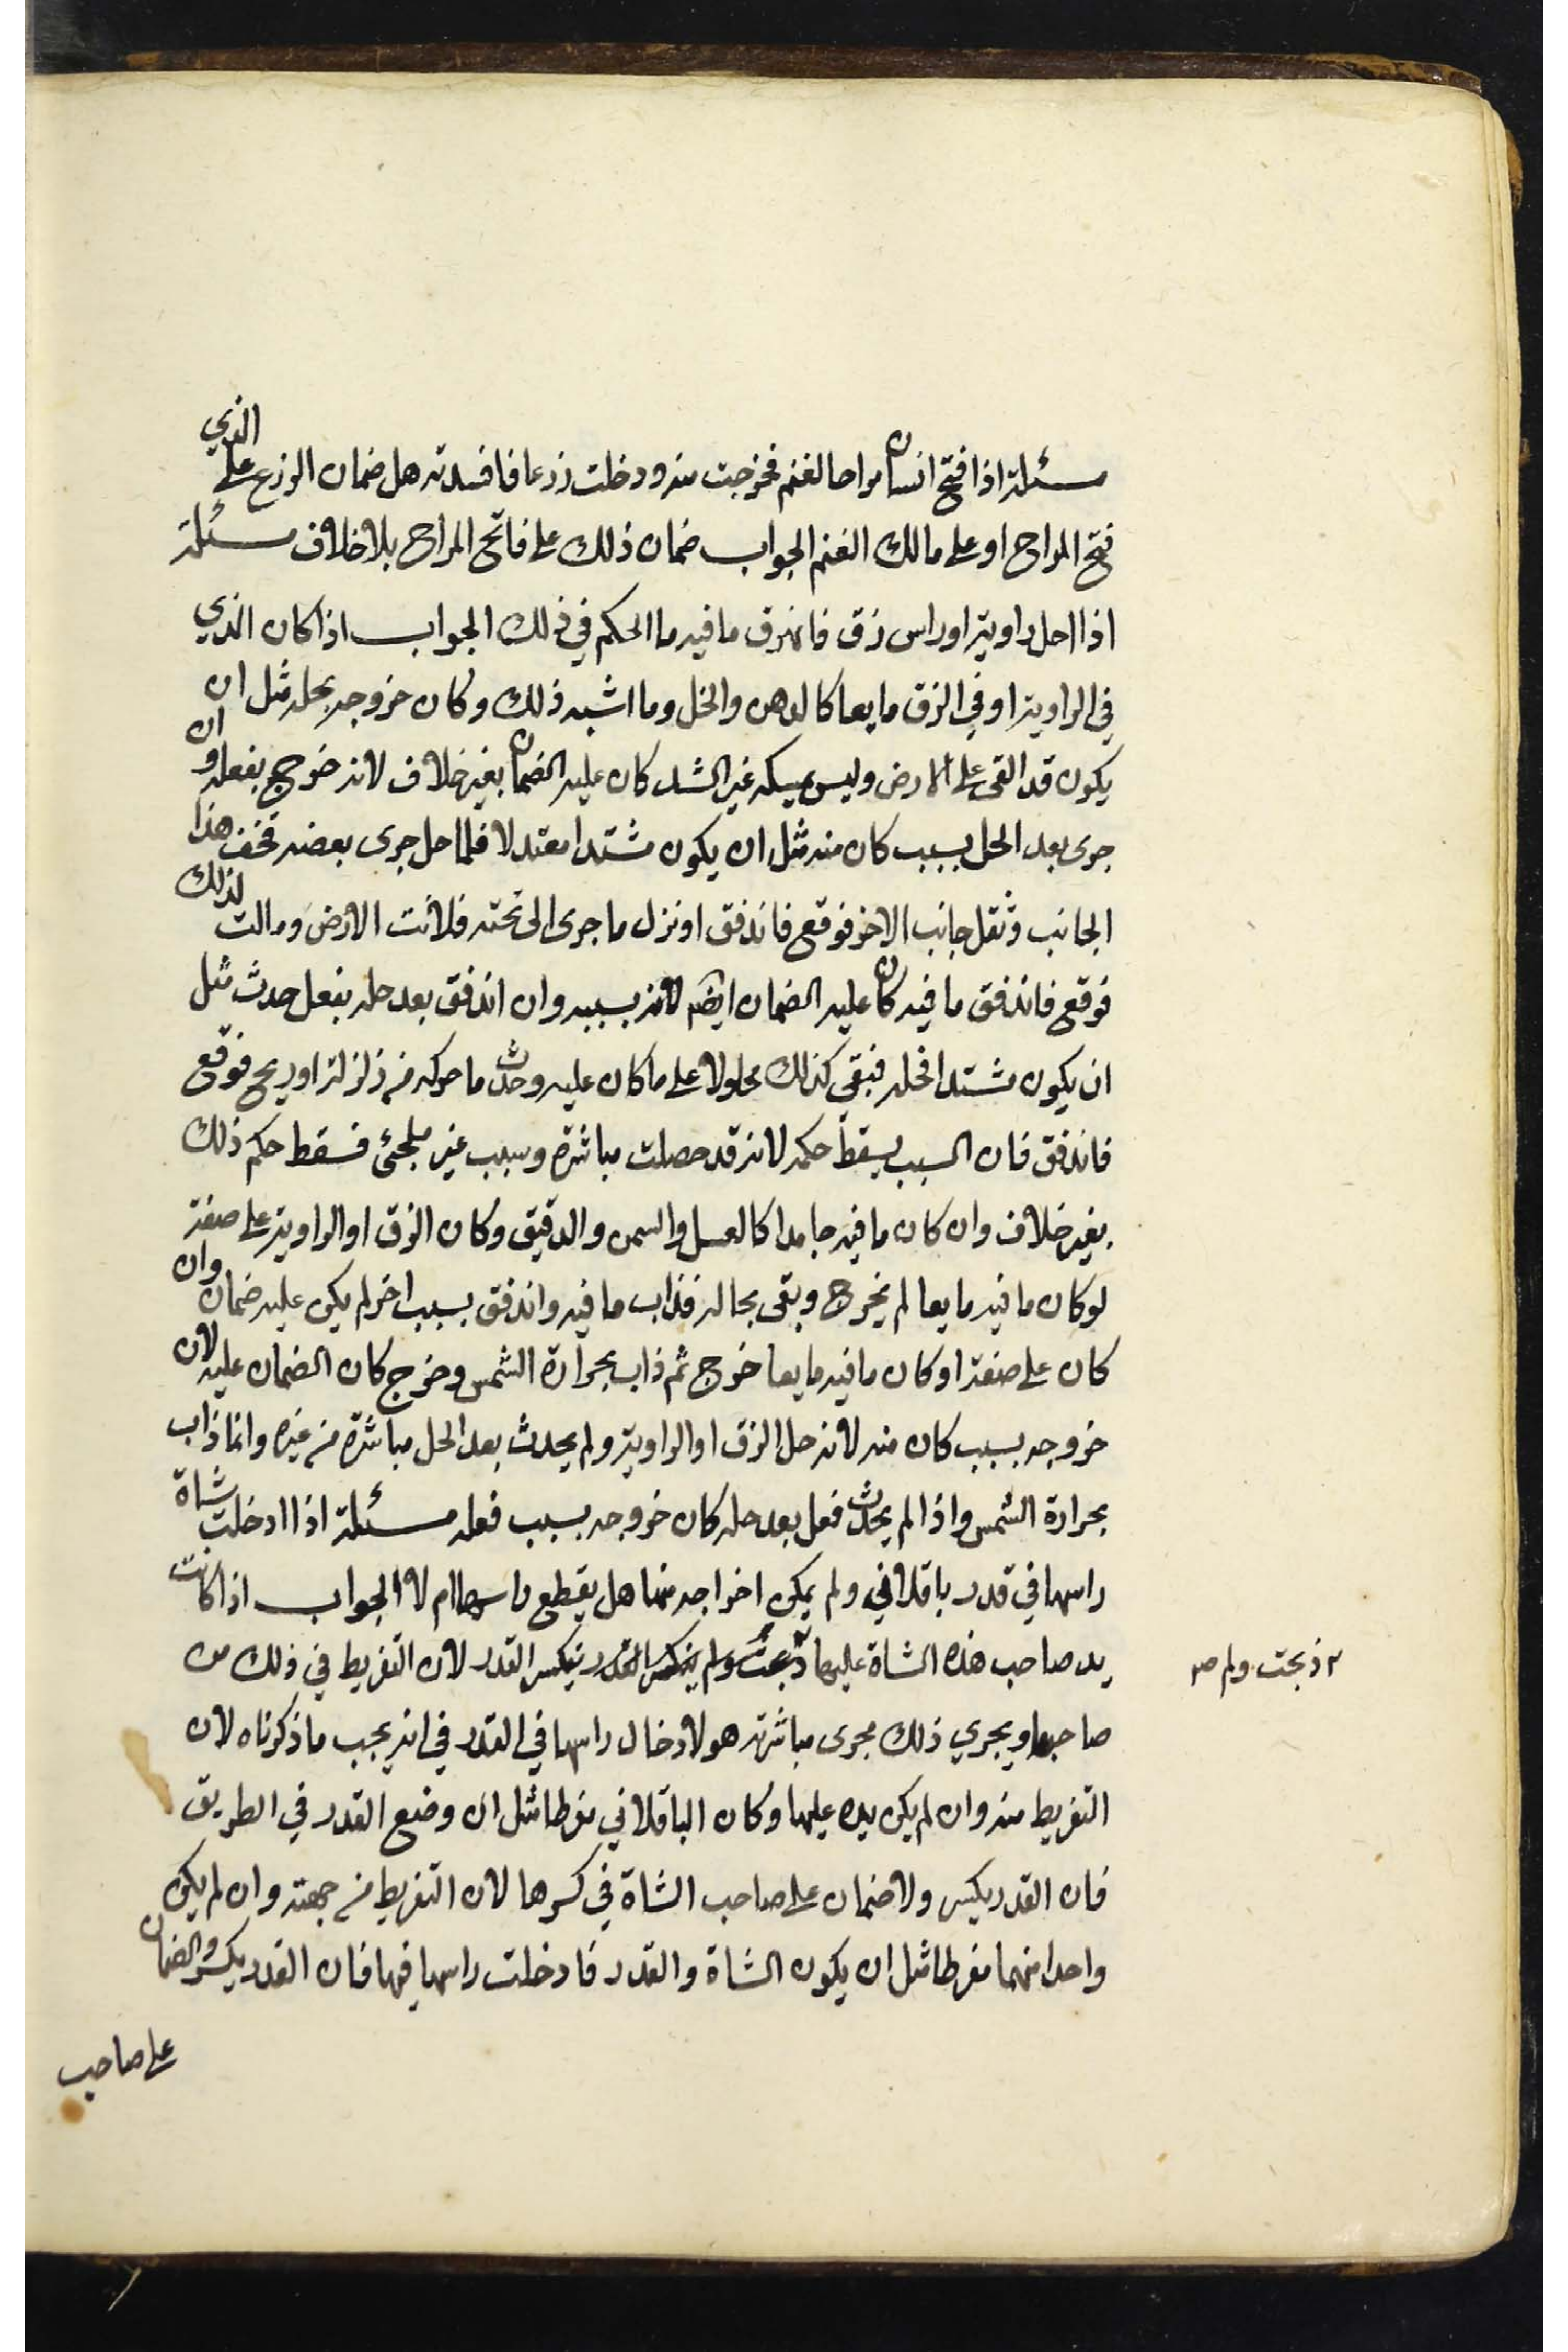 مسئلة اذا فتح انسان مراحا لغنم فخرجت منه ودخلت زرعا فافسدته هل ضمان الزرع على الذي
فتح المراح او على مالك الغنم الجواب ضمان ذلك على فاتح المراح بلا خلاف مسئلة
اذا احل راوية او راس زق فانهرق ما فيه ما الحكم في ذلك الجواب اذا كان الذي
في الراوية او في الزق مايعا كالدهن والخل وما اشبه ذلك وكان خروجه بحله مثل ان
يكون قد القى على الارض وليس يمسكه غير الشد كان عليه الضمان بغير خلاف لانه خرج بفعله وان
جرى بعد الحل بسبب كان منه مثل ان يكون مشتدا معتدلا فلما حل جرى بعضه فخفف هذا
الجانب وثقل جانب الاخر فوقع فاندفق او نزل ما جرى الى تحته فلانت الارض ومالت لذلك
فوقع فاندفق ما فيه كان عليه الضمان ايضم لانه بسببه وان اندفق بعد حله بفعل حدث مثل
ان يكون مشتدا فحله فبقي كذلك محلولا على ما كان عليه وحدث ما حركه من زلزلة او ريح فوقع
فاندفق فان السبب يسقط حكمه لانه قد حصلت مباشرة وسبب غير ملجئ فسقط حكم ذلك
بغير خلاف وان كان ما فيه جامدا كالعسل والسمن والدقيق وكان الزق او الراوية على صفة
لو كان ما فيه مايعا لم يخرج وبقى بحاله فذاب ما فيه واندفق بسبب اخر لم يكن عليه ضمان وان
كان على صفة او كان ما فيه مايعا خرج ثم ذاب بحرارة الشمس وخرج كان الضمان عليه لان
خروجه بسبب كان منه لانه حل الزق او الراوية ولم يحدث بعد الحل مباشرة من غيره وانما ذاب
بحرارة الشمس واذا لم يحدث فعل بعد حله كان خروجه بسبب فعله مسئلة اذا ادخلت شاة
راسها في قدر باقلاني ولم يمكن اخراجه منها هل يقطع راسها ام لا الجواب اذا كانت
يد صاحب هذه الشاة عليها ذبحت ولم ينكسر القدر نيكسر القدر لان التفريط في ذلك من
٢ ذبحت ولم صر
صاحبها ويجري ذلك مجرى مباشرته هو لادخال راسها في القدر في انه يجب ما ذكرناه لان
التفريط منه وان لم يكن يده عليها وكان الباقلاني مفرطا مثل ان وضع القدر في الطريق
فان القدر يكسر ولا ضمان على صاحب الشاة في كسرها لان التفريط من جهته وان لم يكن
واحدا منهما مفرطا مثل ان يكون الشاة والقدر فادخلت راسها فيها فان القدر يكسر والضمان
على صاحب